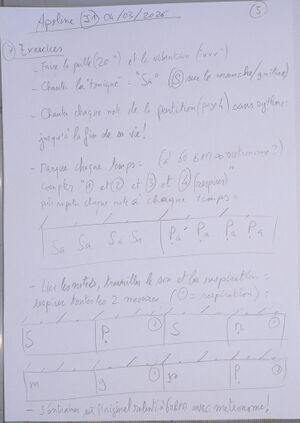 Apolline (J1) 04/03/2026 (5)
Exercices
- Faire la paille (20'') et la vibration ("vvv")
- Chanter la "tonique" = "Sa" (S sur le manche/guitare)
- Chanter chaque note de la partition (page 4) sans rythme
jusqu'à la fin de sa vie!
- Marquer chaque temps = (à 60 BPM métronome?)
compter "1 et 2 et 3 et 4 (respirer)"
puis chaque note à chaque temps =
Sa Sa Sa Sa Pa Pa Pa Pa
- Lier les notes, travailler le son et la respiration =
respirer toutes les 2 mesures (= respiration):
S P S n
m g P
- S'entraîner sur l'original ralenti à 60 BPM avec métronome!